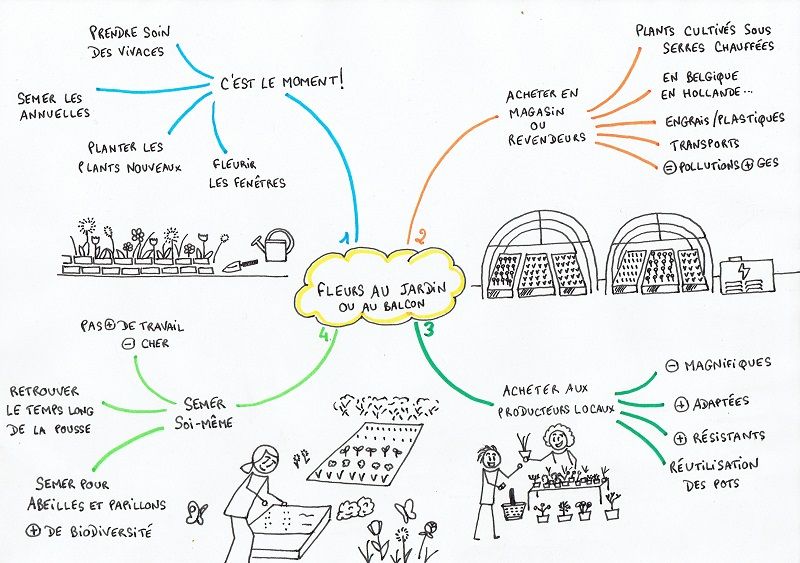 FLEURS AU JARDIN
OU AU BALCON
1
C'EST LE MOMENT!
PRENDRE SOIN
DES VIVACES
SEMER LES
ANNUELLES
PLANTER LES
PLANTS NOUVEAUX
FLEURIR
LES FENÊTRES
2
ACHETER EN
MAGASIN
OU
REVENDEURS
PLANTS CULTIVÉS SOUS
SERRES CHAUFFÉES
EN BELGIQUE
EN HOLLANDE...
ENGRAIS/PLASTIQUES
TRANSPORTS
= POLLUTIONS + GES
3
ACHETER AUX
PRODUCTEURS LOCAUX
- MAGNIFIQUES
+ ADAPTÉES
+ RÉSISTANTS
RÉUTILISATION
DES POTS
4.
SEMER
SOI-MÊME
PAS + DE TRAVAIL
- CHER
RETROUVER
LE TEMPS LONG
DE LA POUSSE
SEMER POUR
ABEILLES ET PAPILLONS
+ DE BIODIVERSITÉ